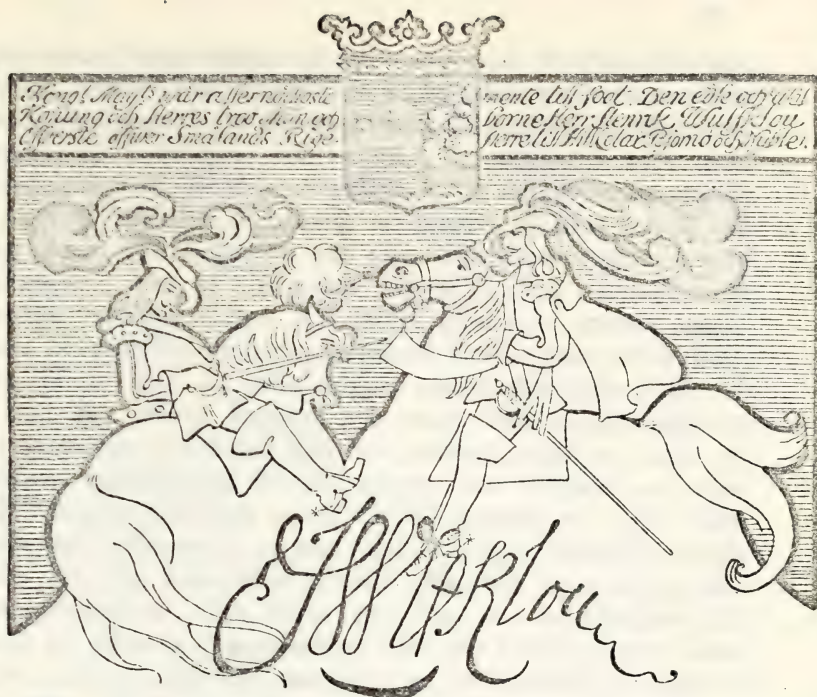 Kongl Mayts wår allernådigste
Konung och Herres troo Man och
Öfverste öffwer Smålands Rige
mente till foot. Den edle och wäl
borne Herr Henrik Wulffklou
Herre till
HWulfKlou